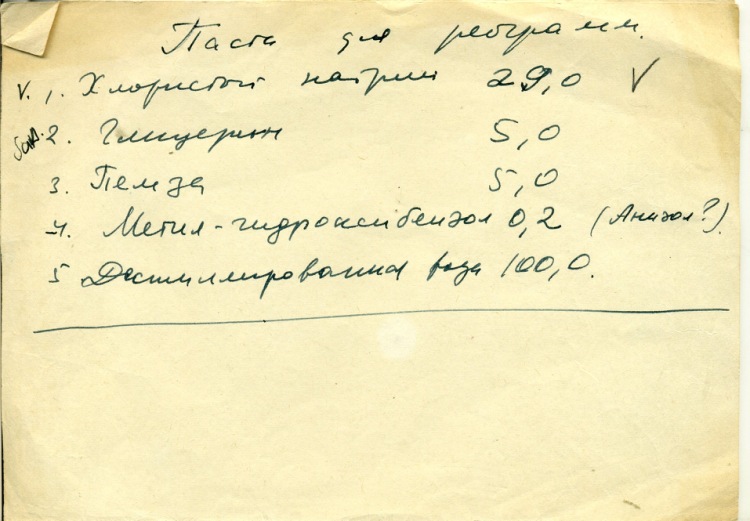 Паста для реограмм.
V. 1. Хлористый натрий 29,0 V
2. Глицерин 5,0
3. Пемза 5,0
4. Метил-гидроксибензол 0,2 (Анизол?).
5 Дистиллированная вода 100,0.